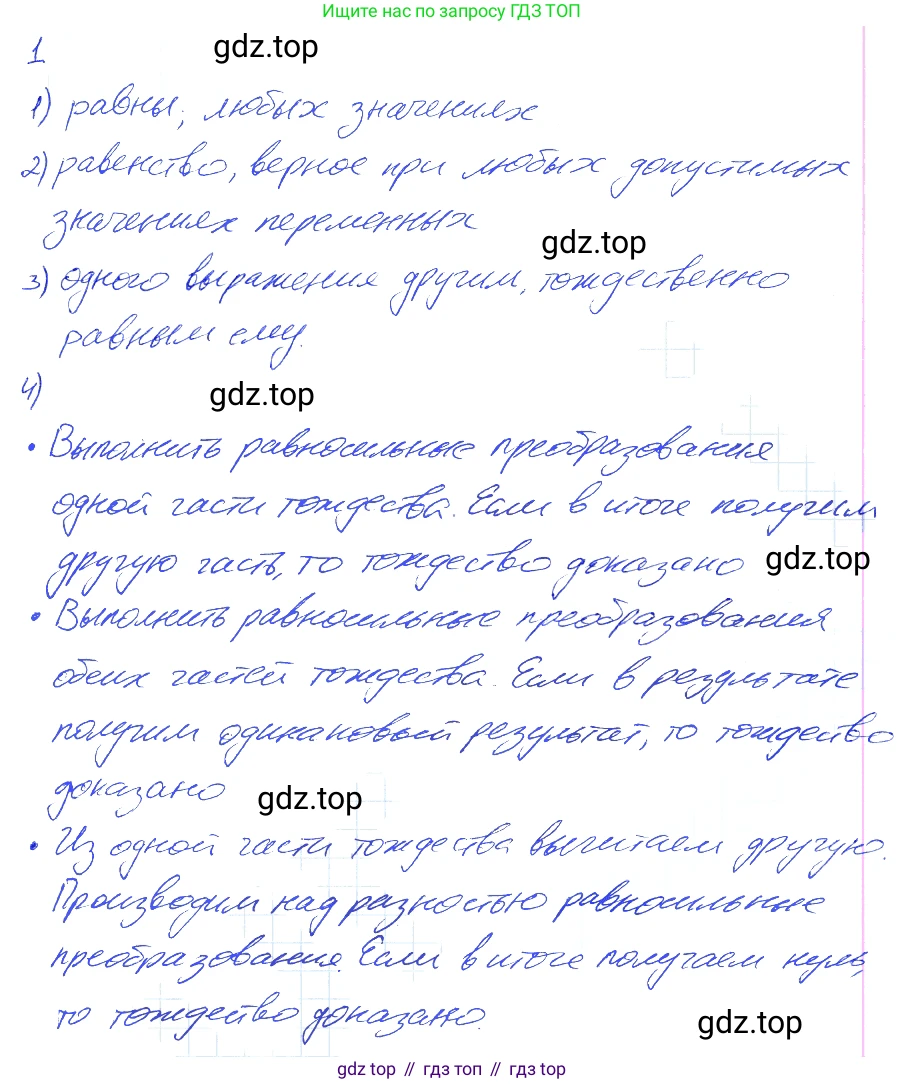 Ищите нас по запросу ГДЗ ТОП
1
gdz.top
1) равны; любых значениях
2) равенство, верное при любых допустимых
значениях переменных
gdz.top
3) одного выражения другим, тождественно
равным ему.
4)
gdz.top
• Выполнить равносильные преобразования
одной части тождества. Если в итоге получим
другую часть, то тождество доказано
gdz.top
• Выполнить равносильные преобразования
обеих частей тождества. Если в результате
получим одинаковый результат, то тождество
доказано
gdz.top
• Из одной части тождества вычитаем другую.
Производим над разностью равносильные
преобразования. Если в итоге получаем нуль,
то тождество доказано.
gdz.top
gdz top // гдз топ // gdz top